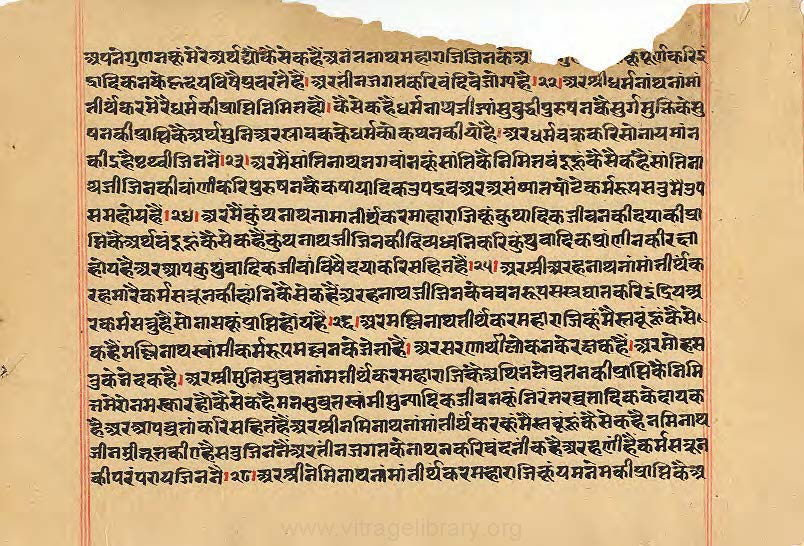 अपनेगुणनकूंमेरेअर्थद्यौकैसेकहैंअनंतनाथमहाराजिजिनकेअ
द्रादिकनकेहृदयविषैप्रवरतेहै।अरतीनजगतकरिवंदिवेजोग्यहै।२२।अरश्रीधर्मनाथनांमां
तीर्थकरमेरेधर्मकीप्राप्तिनिमितहौ।कैसेकहैधर्मनाथजीजांमुबुद्धीपुरुषनकैसुर्गमुक्तिकेसु
षनकीप्राप्तिकैअर्थमुनिअरस्रावककेधर्मकोकथनकीयोहै।अरधर्मचक्रकरिसोनायमांन
कीऽहैपृथ्वीजिननैं।२३।अरमैसांतिनाथनगवांनकूंसांतिकैनिमितवंदूहूंकैसैकहैसांतिना
थजीजिनकीवांणीकरिपुरुषनकैकषायादिकउपद्रवअरअसंष्यातषोटेकर्मरूपसत्रुमैतेउप
समहोयहै।२४।अरमैकुंथनाथनामातीर्थकरमाहाराजिकूंकुंथादिकजीवनकीदयाकीप्रा
प्तिकैअर्थवंदूहूंकैसेकहैकुंथनाथजीजिनकीदिव्यध्वनिकरिकुंथुवादिकप्रांणीनकीरक्षा
होयहैअरआपकुंथुवादिकजीवांविषैदयाकरिसहितहै।२५।अरश्रीअरहनाथनांमांतीर्थक
रहमारैकर्मसत्रूनकीहांनिकैसेकहैअरहनाथजीजिनकेवचनरूपसस्त्रघातकरिइंद्रियअ
रकर्मसत्रुहैसोनासकूंप्राप्तिहोयहै।२६।अरमल्लिनाथतीर्थकरमहाराजिकूंमैस्तवूहूंकैसे
कहैमल्लिनाथस्वांमीकर्मरूपमल्लनकेजेताहै।अरसरणार्थीलोकनकेरक्षकहै।अरमोहस
त्रुकेछेदकहै।अरश्रीमुनिसुव्रतनांमतीर्थकरमहाराजिकैअर्थिनतेव्रतनकीप्राप्तिकैनिमि
तमेरोनमस्कारहौकैसेकहैमनसुव्रतस्वामीमुन्यादिकजीवनकूंनिरंतरव्रतादिककेदायक
हैअरआपव्रतांकरिसहितहैंअरश्रीनमिनाथनांमांतीर्थकरकूंमैस्तवूंहूंकैसेकहैनमिनाथ
जीनम्रीभूतकीएहैसत्रुजिननैंअरतीनजगतकेनाथनकरिवंदनीकहैअरहणीहैकर्मसत्रून
कीपरंपरायजिननै।२८।अरश्रीनेमिनाथनांमांतीर्थकरमहाराजिकूंयमनेमकीप्राप्तिकैअ
www.vitragelibrary.org